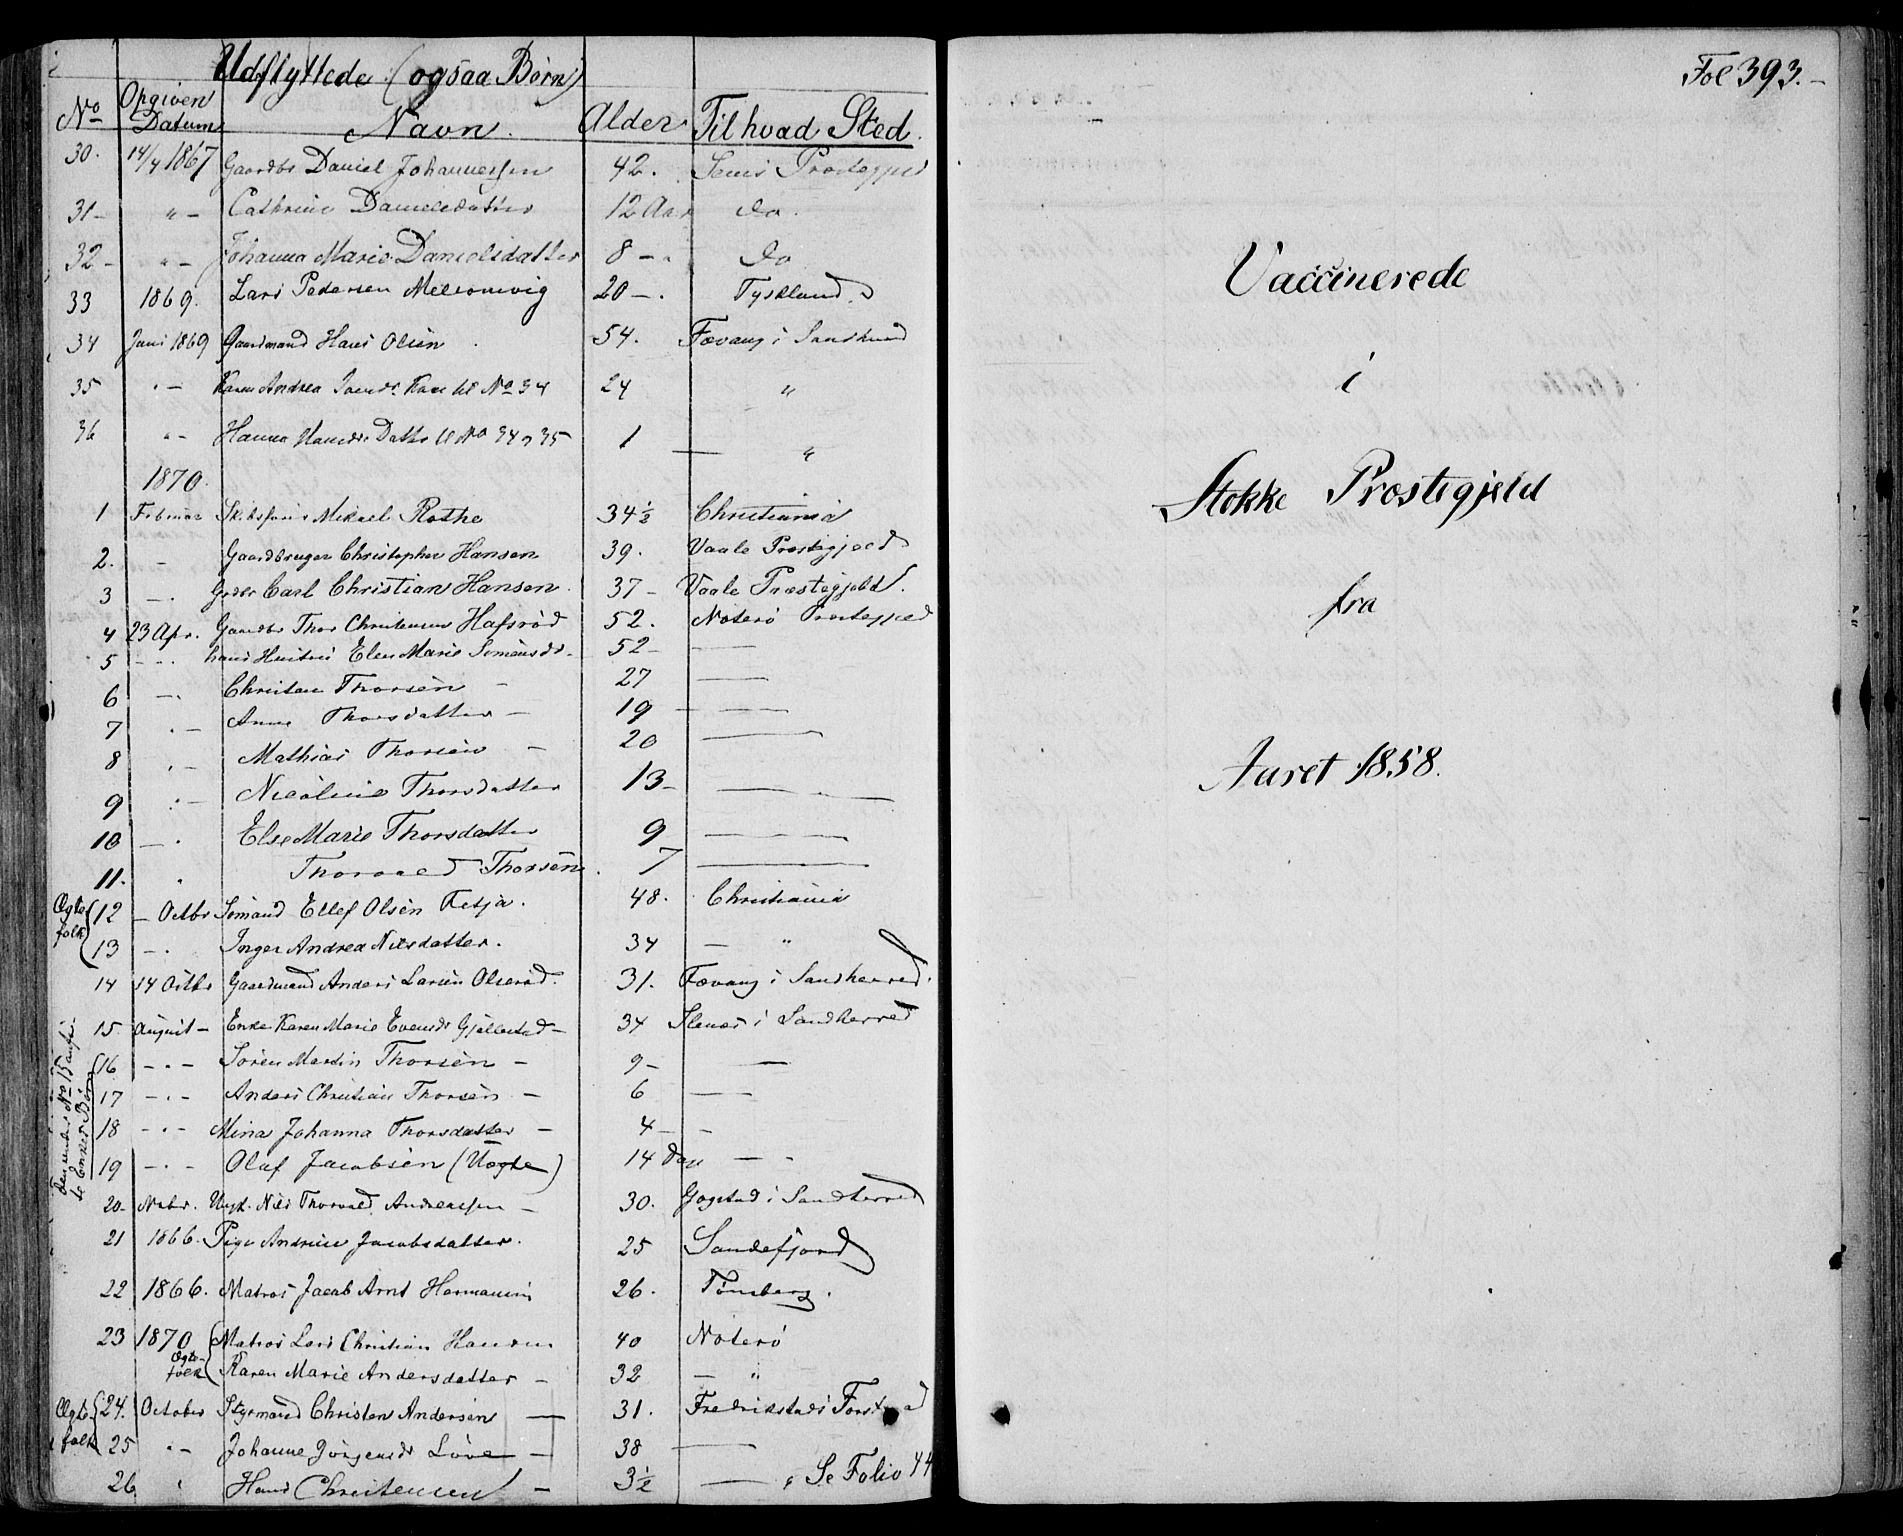 Udflyttede (ogsaa Børn)
No Opgiven Datum Navn. Alder Til hvad Sted.
30. 14/4 1867 Gaardbr Daniel Johannessen 42. Sems Præstegjeld
31 - " - Cathrine Danielsdatter 12 Aar do.
32 - " - Johanna Marie Danielsdatter 8 - " do
33 1869. Lars Pedersen Melsomvig 20 - . Tyskland.
34 Juni 1869 Gaardmand Hans Olsen 54. Fævang i Sandherred
35 " - Karen Andrea Kone til No 34 24 "
36 " - Hanna Hansdr. Datter til No 34 & 35 1 "
1870.
1 Februar Mikael Rothe 34½ Christiania
2. - Gaardbruger Christopher Hansen 39. Vaale Præstegjeld
3 - . Carl Christian Hansen. 37 - Vaale Præstegjeld.
4 23 Apr. Gaardbr Thor Christensen Hafsrød 52. Nøterø Præstegjeld
5 - . hans Hustru Elen Marie Simensdr. 52 - —
6 - . Christen Thorsen - 27 —
7 . - Anne Thorsdatter - 19 - —
8 . - Mathias Thorsen - 20 —
9 . - Nicoline Thorsdatter 13 - —
10 - . Else Marie Thorsdatter 9 —
11. . Thorvald Thorsen. 7 —
Ægte folk { 12 - Octbr Sømand Ellef Olsen Fetja. 48. Christiania
13 - . Inger Andrea Nilsdatter. 34 — "
14 14 Octbr Gaardmand Anders Larsen Olserød. 31. Fævang i Sandherred.
15. August - Enke Karen Marie Evensdr Gjellestad - 34 i Sandherred
16 - . - Søren Martin Thorsen - 9 - —
17 - . - Anders Christian Thorsen - 6 —
18 - . - Mina Johanna Thorsdatter - 4 - -
19 - . - Olaf Jacobsen (Uægte) 14 Dage — -
No 15 Enkes Børn
20 - Novbr. Ungk. Nils Thorvald Andreassen - 30. Gogstad i Sandherred
21 1866. Pige Andrine Jacobsdatter. 25 Sandefjord
22 1866. Matros Jacob Arnt Hermansen 26. Tønsberg.
23 1870 { Matros Lars Christian Hansen 40 Nøterø
Ægtefolk Karen Marie Andersdatter - 32 — "
Ægtefolk { 24. October Styrmand Christen Andersen — 31. Fredrikstads Forstad
25 " - Johanne Jørgensdr Løve - 38 —
26 " Hans Christensen - 3½ — " Se Folio 44
Fol 393. -
Vaccinerede
i
Stokke Præstegjeld
fra
Aaret 1858.